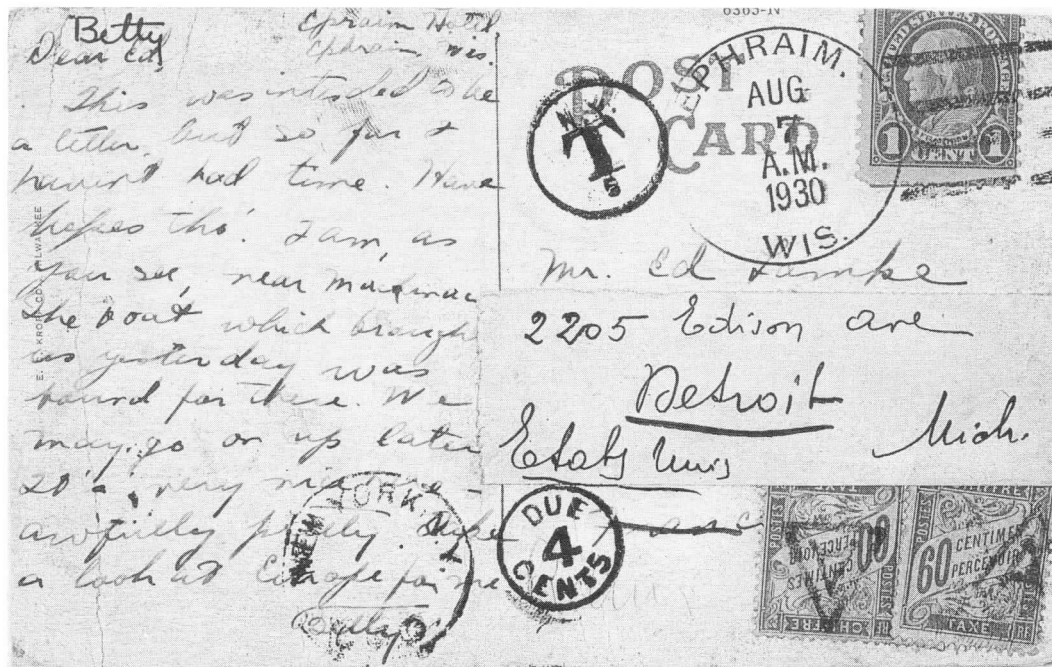 Betty
Ephraim Hotel,
Ephraim, Wis.
Dear Ed,
This was intended to be
a letter, but so far I
haven't had time. Have
hopes tho'. I am, as
you see, near Mackinac
The boat which brought
us yesterday was
bound for there. We
may go on up later
It's a very nice
awfully pretty. Take
a look at Europe for me
Betty
E. C. KROPP CO. MILWAUKEE
6363-N
POST
CARD
EPHRAIM.
AUG
7
A.M.
1930
WIS.
N.Y.
T
5
UNITED STATES POSTAGE
1 CENT 1
Mr. Ed Lampe
2205 Edison Ave
Detroit
Mich.
Etats Unis
NEW YORK, N.Y.
DUE
4
CENTS
POSTES
60
CENTIMES
A PERCEVOIR
CHIFFRE
TAXE
POSTES
CHIFFRE
60
CENTIMES
A PERCEVOIR
TAXE